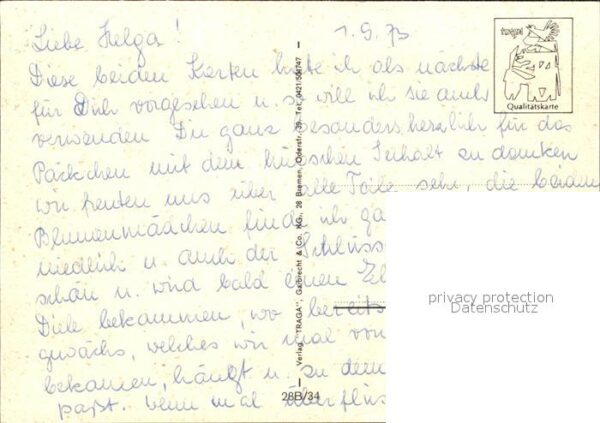 Liebe Helga!
1.9.73
Diese beiden Karten hatte ich als nächste
für Dich vorgesehen u. so will ich sie auch
verwenden Dir ganz besonders herzlich für das
Päckchen mit dem hübschen Inhalt zu danken
wir freuten uns über alle Teile sehr, die beiden
Blumenmädchen finde ich
niedlich u. auch der
schön u. wird bald einen
Diele bekommen, wo bereits
gwächs, welches wir mal von
bekamen, hängt u. zu dem
paßt. wenn mal
tragal
Qualitätskarte
Verlag "TRAGA", Garbrecht & Co. KG., 28 Bremen, Oderstr. 39, Tel. 0421/504747
28B/34
privacy protection
Datenschutz